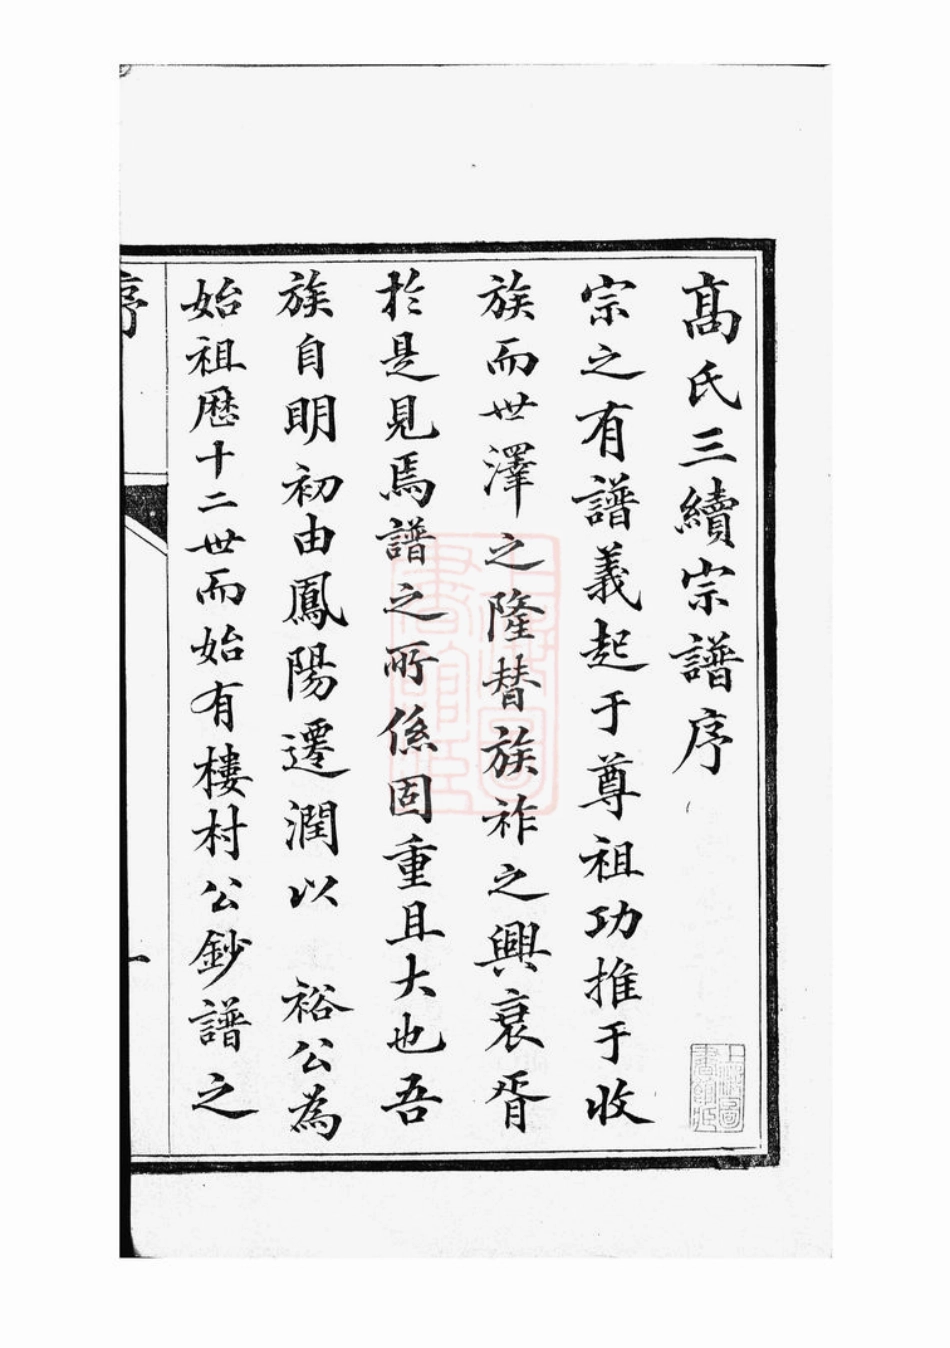 高氏三續宗譜序
宗之有譜義起于尊祖功推于收
族而世澤之隆替族祚之興衰胥
於是見焉譜之所係固重且大也吾
族自明初由鳳陽遷潤以　裕公為
始祖歷十二世而始有樓村公鈔譜之
序
一
上海圖書館藏
上海圖書館藏